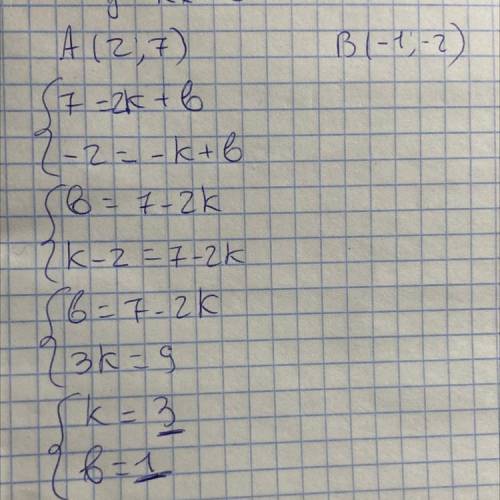 A (2; 7) B (-1; -2)
7 = 2k + b
-2 = -k + b
b = 7 - 2k
k - 2 = 7 - 2k
b = 7 - 2k
3k = 9
k = 3
b = 1